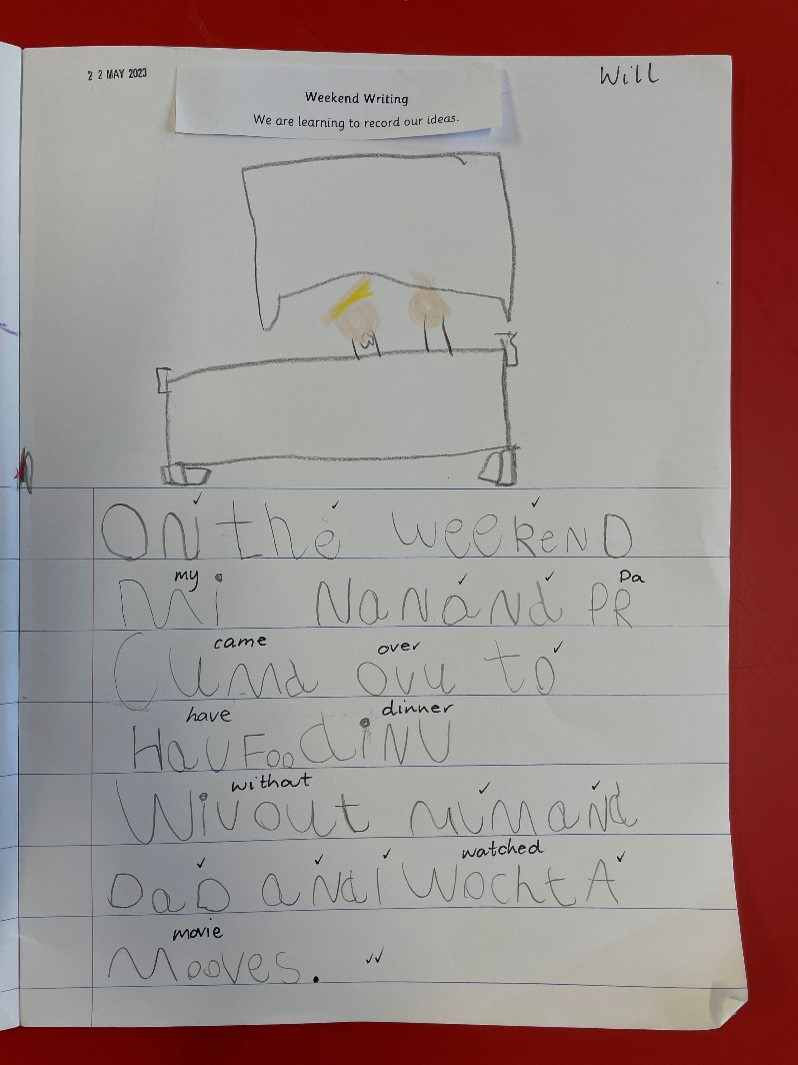 22 MAY 2023
Will
Weekend Writing
We are learning to record our ideas.
ON the weekeND
my Pa
Mi NaNaNd PR
came over
CUMd ovu to
have dinner
Hav Foo diNU
without
Wivout muMaNd
watched
DaD aNd i WochtA
movie
Mooves.